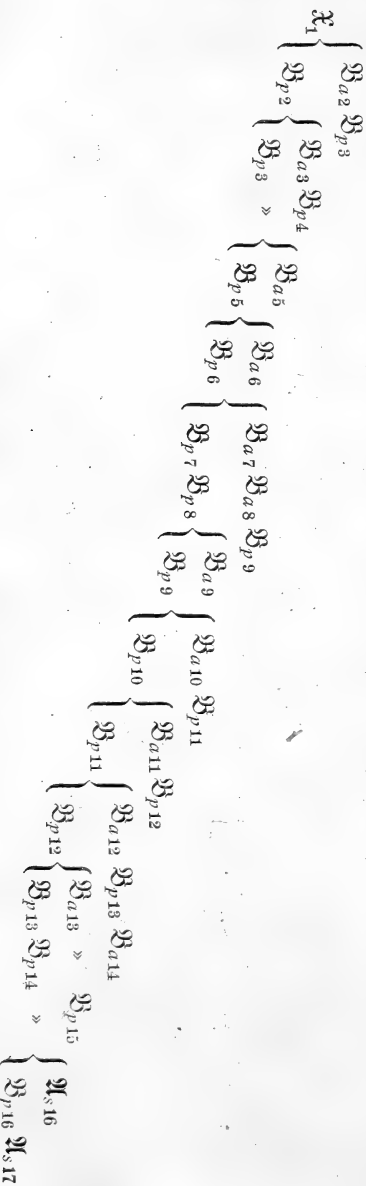 𝔛₁ { 𝔅a2 𝔅p3
𝔅p2 { 𝔅a3 𝔅p4
𝔅p3 » { 𝔅a5
𝔅p5 { 𝔅a6
𝔅p6 { 𝔅a7 𝔅a8 𝔅p9
𝔅p7 𝔅p8 { 𝔅a9
𝔅p9 { 𝔅a10 𝔅p11
𝔅p10 { 𝔅a11 𝔅p12
𝔅p11 { 𝔅a12 𝔅p13 𝔅a14
𝔅p12 { 𝔅a13 » 𝔅p15
𝔅p13 𝔅p14 » { 𝔄s16
𝔅p16 𝔄s17